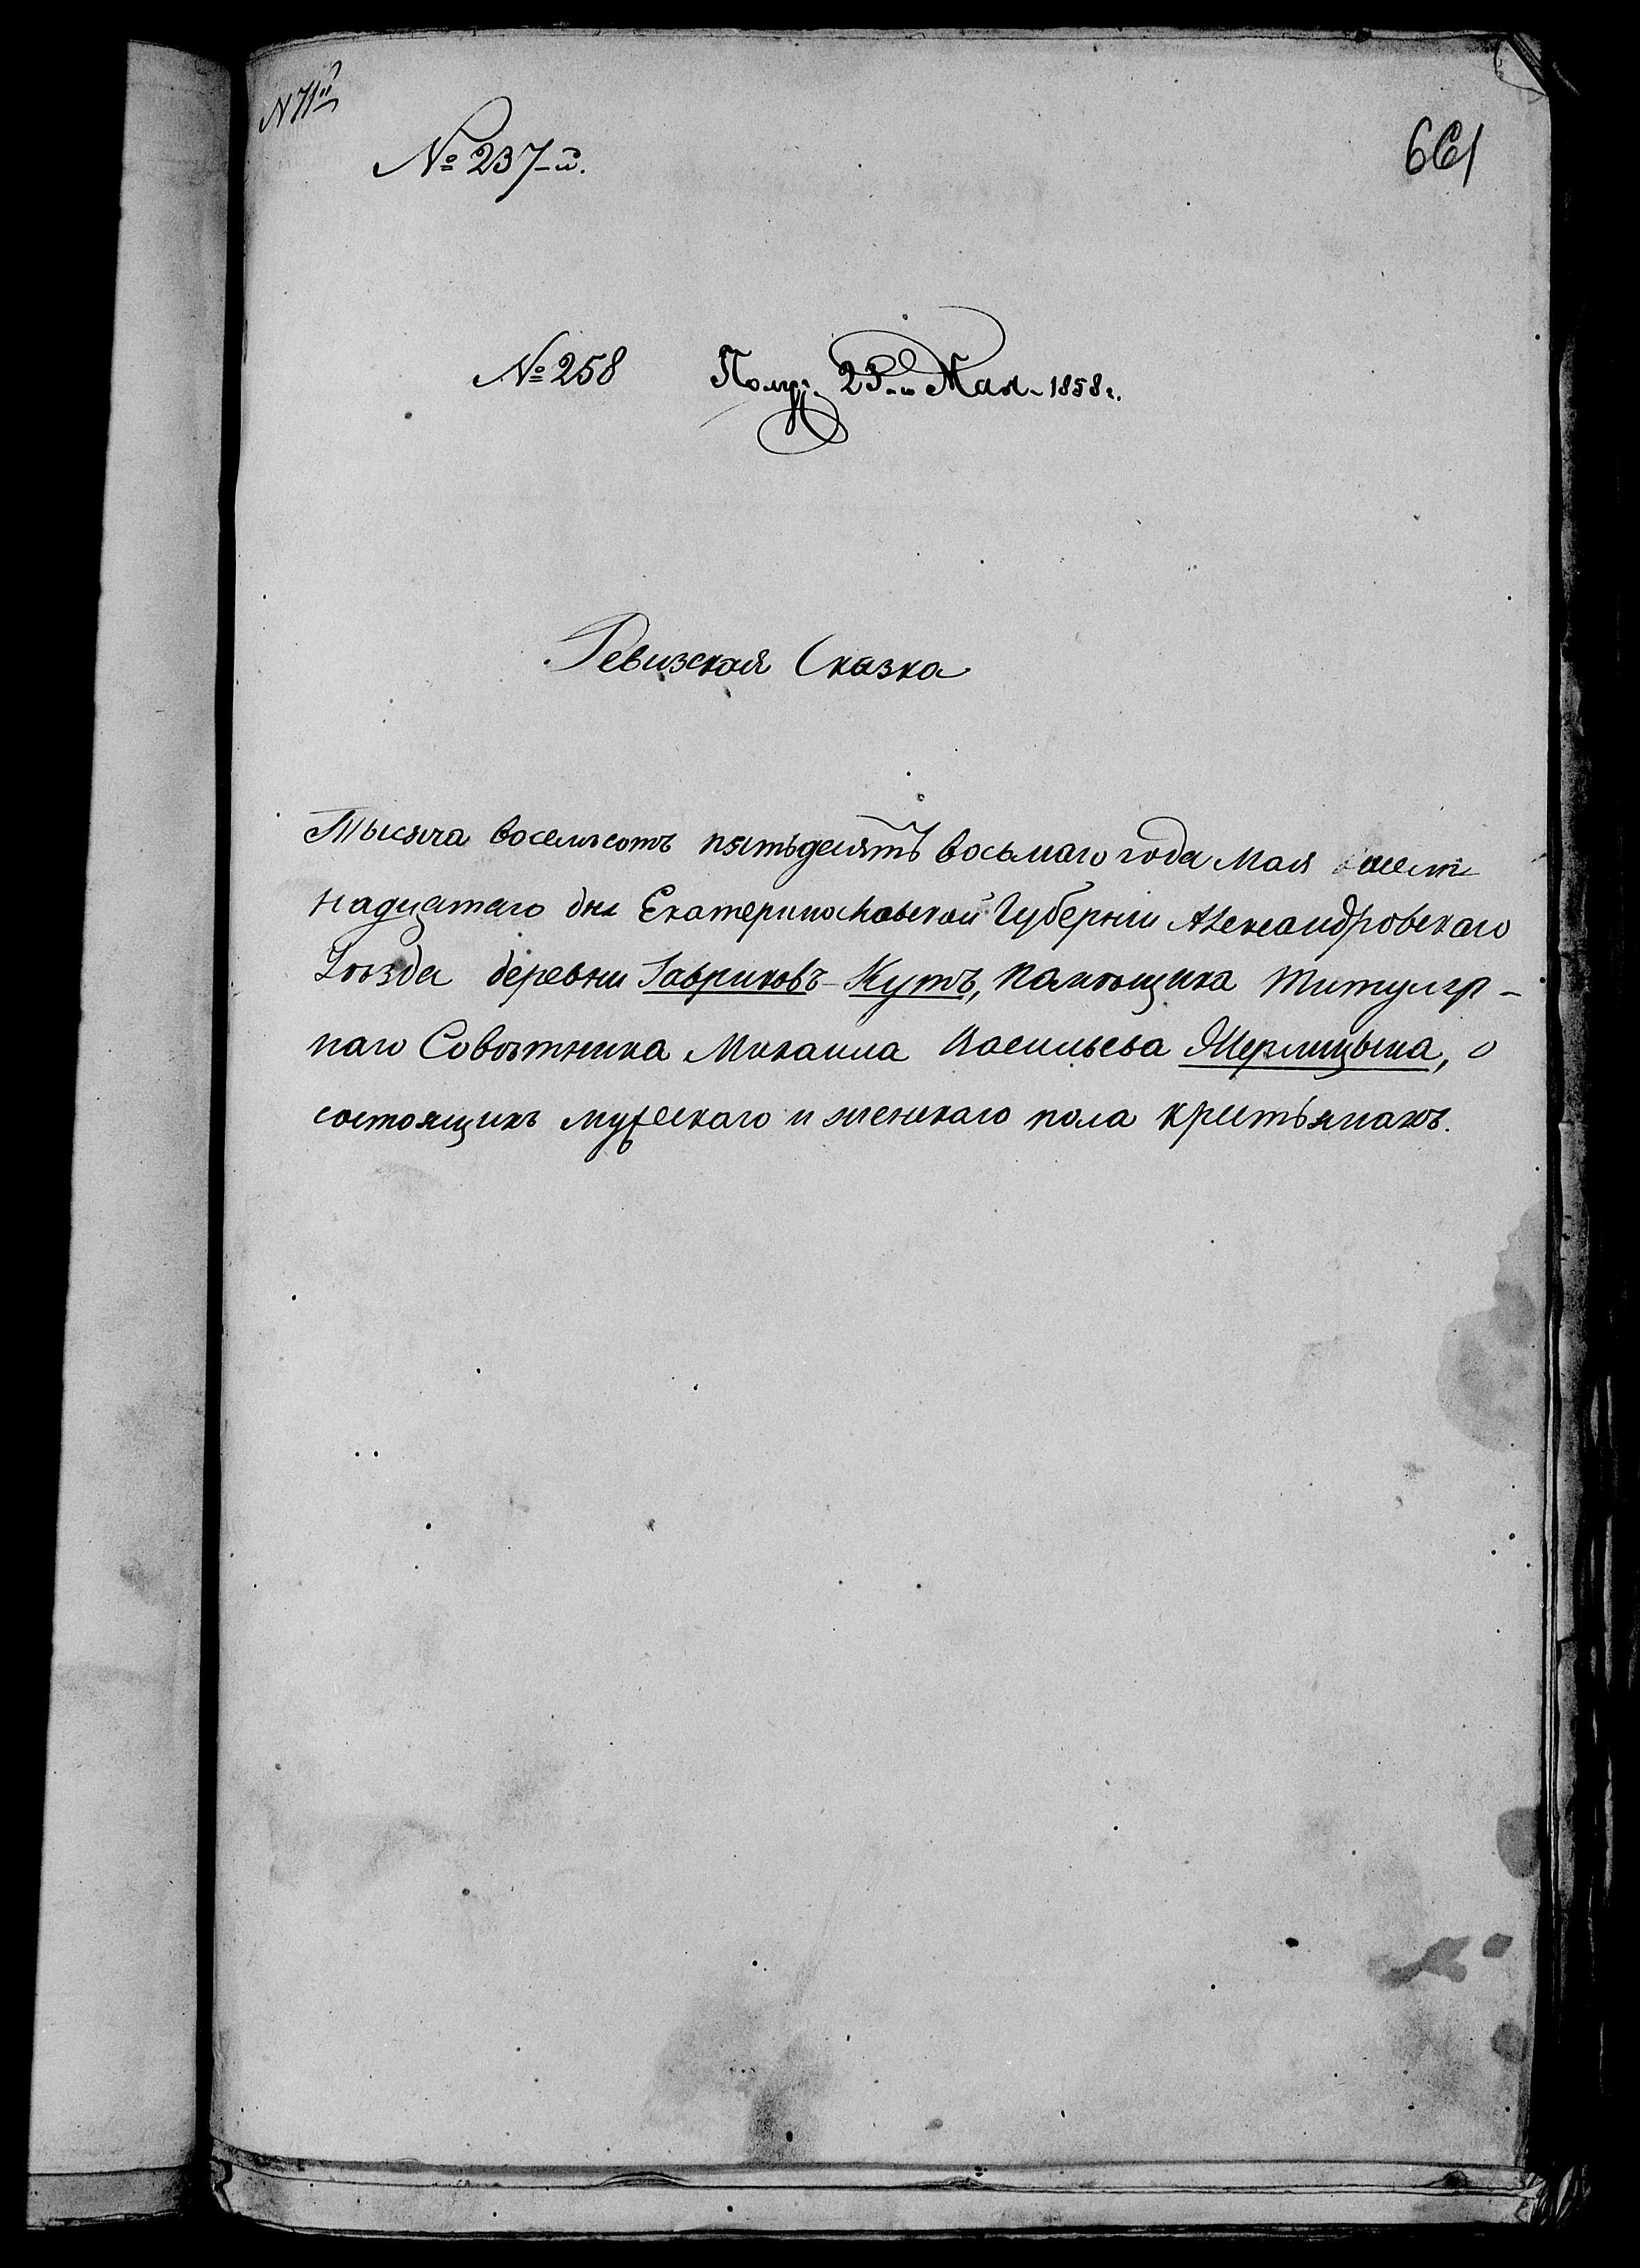 N 71й
№ 237-й.
661
№ 258 Получ. 23-го Мая 1858 г.
Ревизская Сказка
Тысяча восемьсотъ пятьдесятъ восьмаго года Мая шест
надцатаго дня Екатеринославской Губерніи Александровскаго
Уѣзда деревни Гавриковъ-Кутъ, Помѣщика Титуляр-
наго Совѣтника Михаила Васильева Шерлицына, о
состоящихъ мужескаго и женскаго пола крестьянахъ.